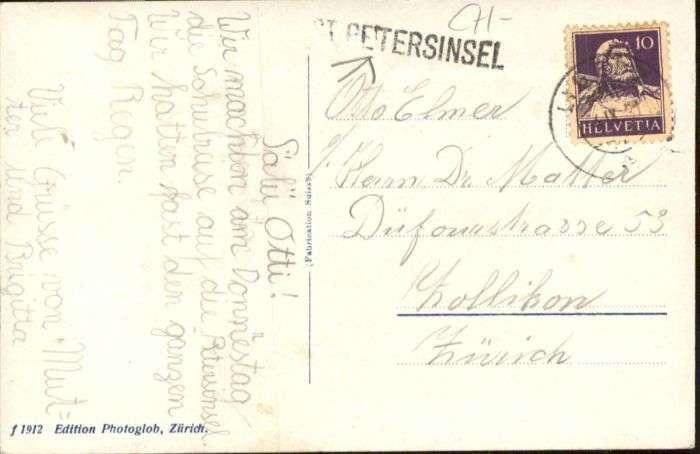 Salü Otti!
Wir machten am Donnestag
die Schulreise auf die Petersinsel.
Wir hatten fast den ganzen
Tag Regen.
Viele Grüsse von Mut=
ter und Brigitta
ST. PETERSINSEL
CH-
10
HELVETIA
Otto Elmer
Herrn Dr. Matter
Dufourstrasse 53
Zollikon
Zürich
(Fabrication Suisse)
f 1912 Edition Photoglob, Zürich.